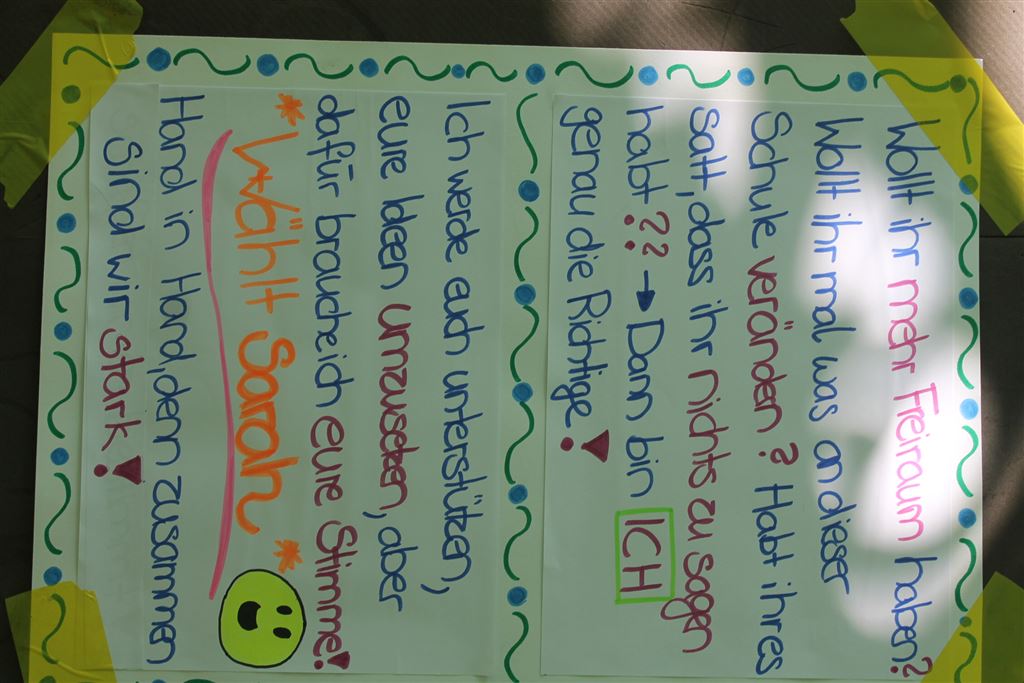 Wollt ihr mehr Freiraum haben?
Wollt ihr mal was an dieser
Schule verändern? Habt ihr es
satt, dass ihr nichts zu sagen
habt?? → Dann bin ICH
genau die Richtige!
Ich werde euch unterstützen,
eure Ideen umzusetzen, aber
dafür brauche ich eure Stimme!
* Wählt Sarah *
Hand in Hand, denn zusammen
Sind wir stark!